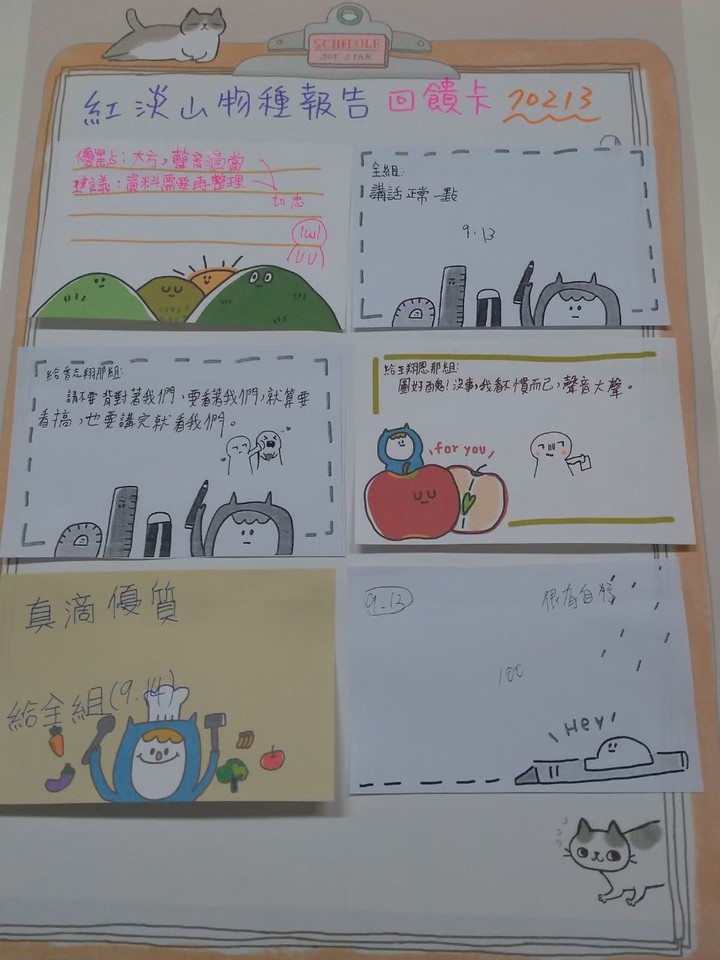 SCHEDULE
JOY STAR
紅淡山物種報告 回饋卡 70213
優點：大方，聲音適當
建議：資料需要再整理
to 忠
全組:
講話正常一點
9.13
請不要背對著我們,要看著我們,就算要
看搞,也要講完就看我們。
圖好醜!沒事,我看不慣而已,聲音大聲。
for you
真滴優質
給全組(9.14)
9.13
100
Hey